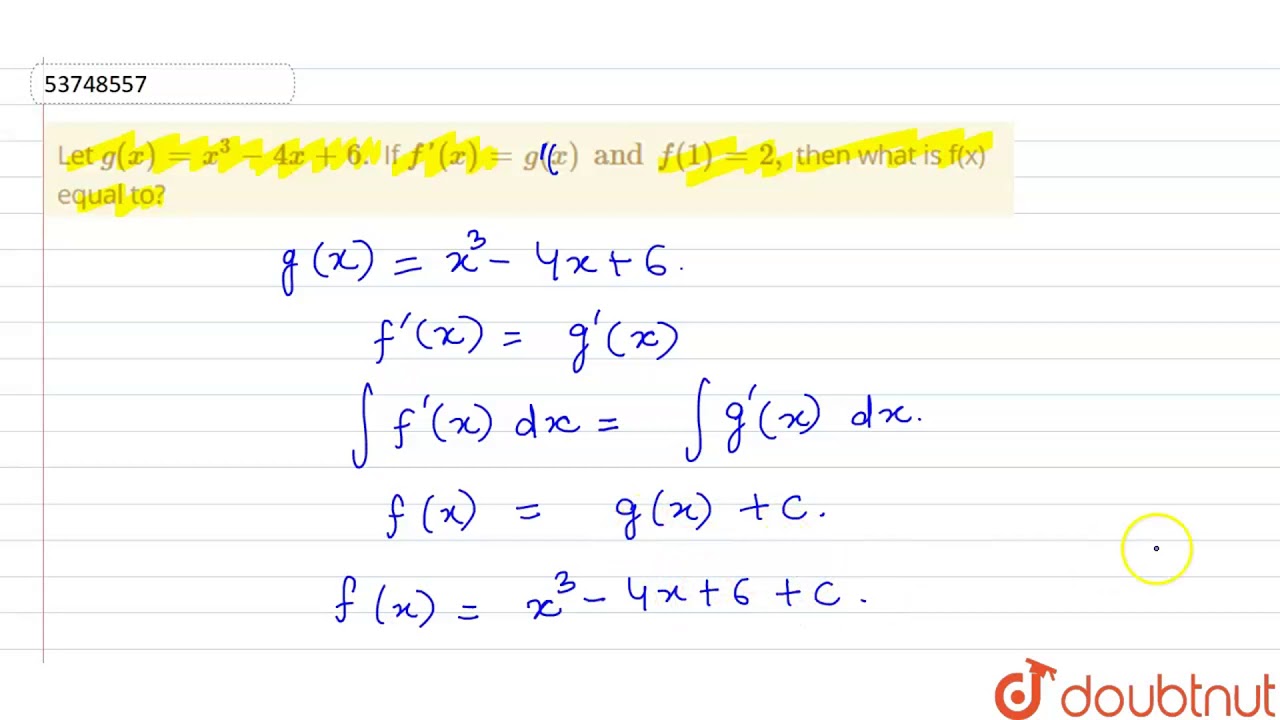 53748557
Let g(x) = x³ − 4x + 6. If f'(x) = g'(x) and f(1) = 2, then what is f(x)
equal to?
g(x) = x³ − 4x + 6.
f'(x) = g'(x)
∫ f'(x) dx = ∫ g'(x) dx.
f(x) = g(x) + c.
f(x) = x³ − 4x + 6 + c.
doubtnut